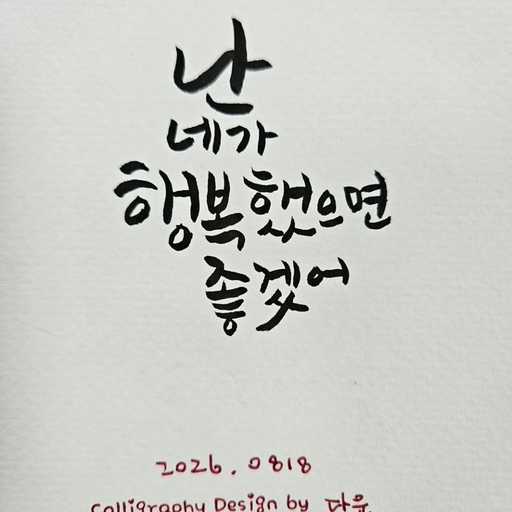 난
네가
행복했으면
좋겠어
2026.0818
Calligraphy Design by 다운